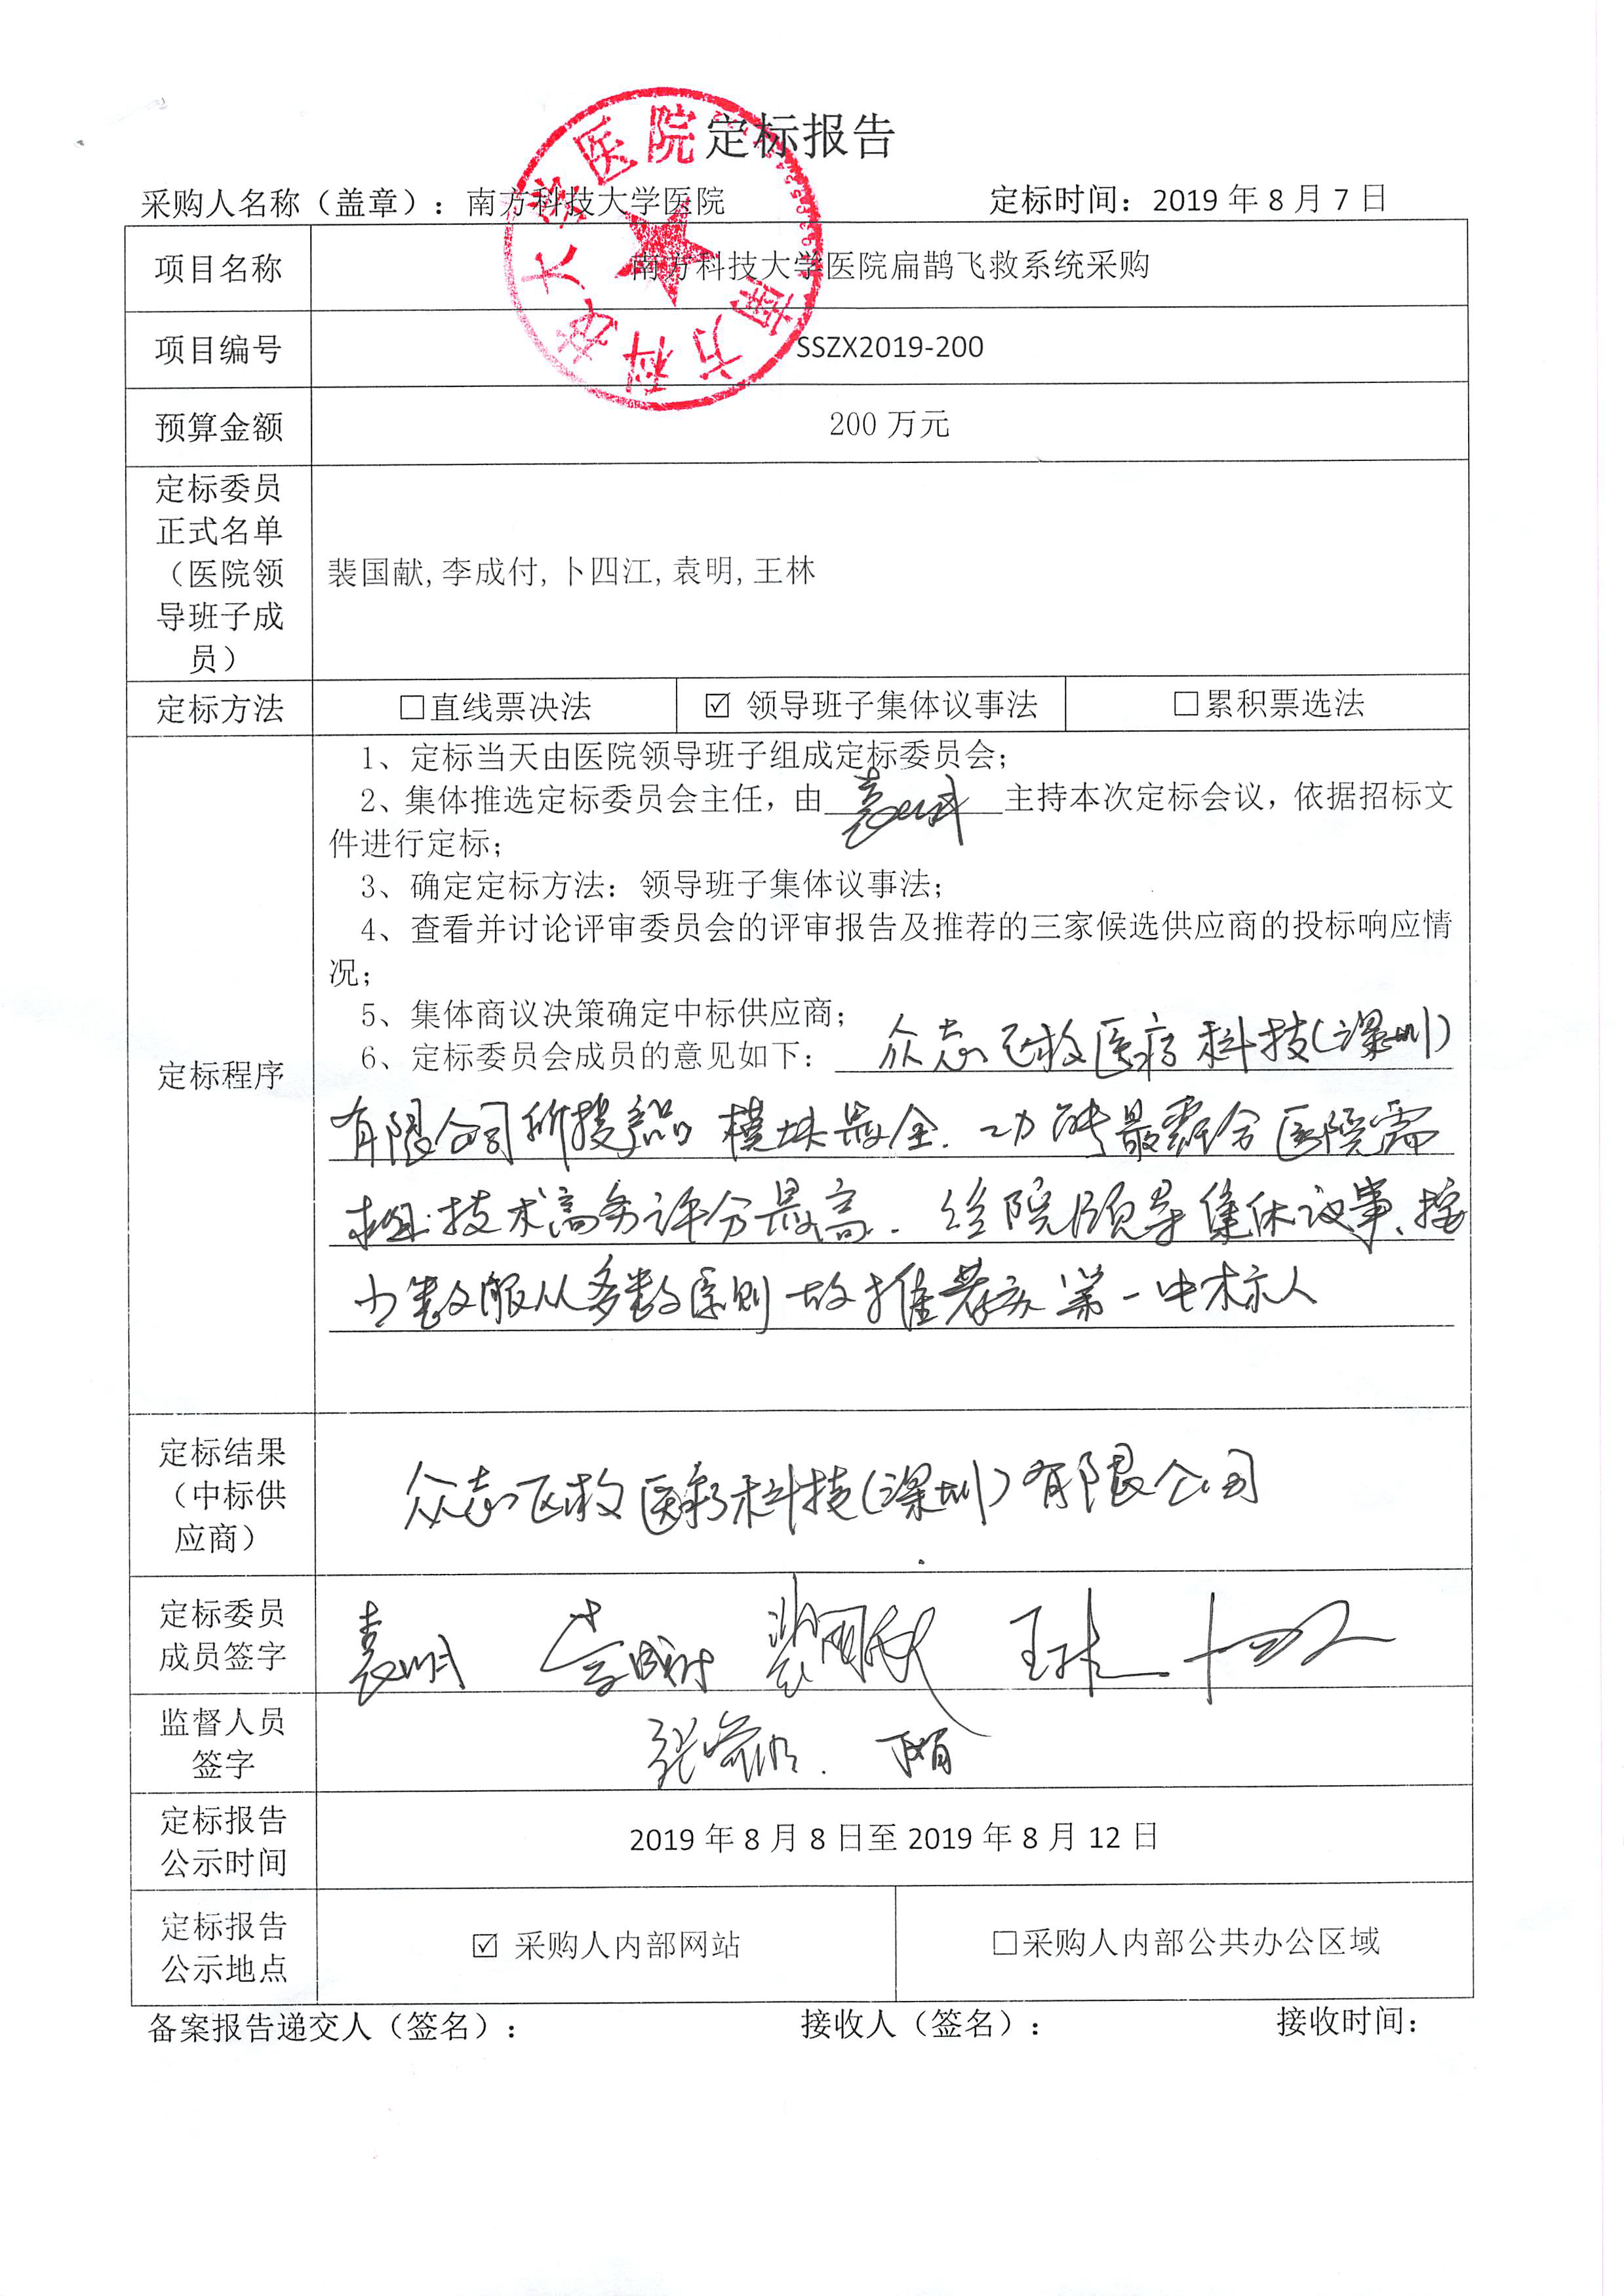 定标报告
采购人名称（盖章）：南方科技大学医院 定标时间：2019 年 8 月 7 日
南方科技大学医院
项目名称 南方科技大学医院扁鹊飞救系统采购
项目编号 SSZX2019-200
预算金额 200 万元
定标委员
正式名单
（医院领
导班子成
员）
裴国献,李成付,卜四江,袁明,王林
定标方法 □直线票决法 ☑ 领导班子集体议事法 □累积票选法
定标程序
1、定标当天由医院领导班子组成定标委员会；
2、集体推选定标委员会主任，由袁明主持本次定标会议，依据招标文
件进行定标；
3、确定定标方法：领导班子集体议事法；
4、查看并讨论评审委员会的评审报告及推荐的三家候选供应商的投标响应情
况；
5、集体商议决策确定中标供应商；
6、定标委员会成员的意见如下：众志飞救医疗科技(深圳)
有限公司所投产品模块最全.功能最符合医院需
求.技术商务评分最高.经院领导集体议事、按
少数服从多数原则 故推荐为第一中标人
定标结果
（中标供
应商）
众志飞救医疗科技(深圳)有限公司
定标委员
成员签字
袁明 李成付 裴国献 王林 卜四江
监督人员
签字
定标报告
公示时间
2019 年 8 月 8 日至 2019 年 8 月 12 日
定标报告
公示地点
☑ 采购人内部网站 □采购人内部公共办公区域
备案报告递交人（签名）： 接收人（签名）： 接收时间：